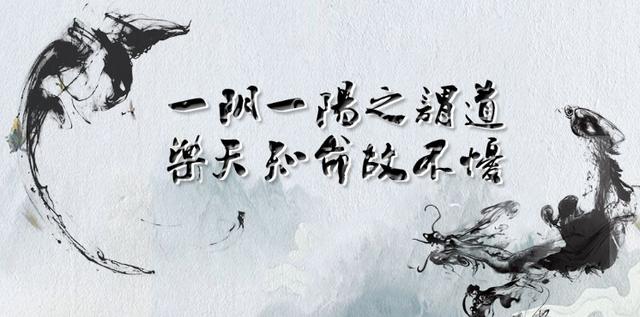 一阴一陽之謂道
樂天知命故不懮